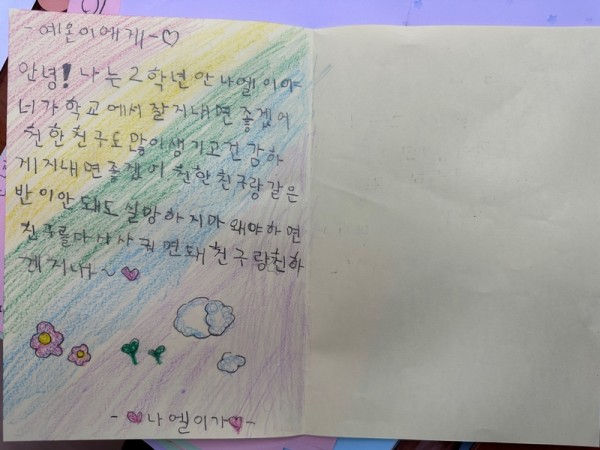 -예온이에게-♡
안녕! 나는 2학년 안나엘이야
너가 학교에서 잘지내면 좋겠어
친한친구도 많이생기고 건감하
게지내면좋겠어 친한친구랑같은
반이안돼도 실망하지마 왜야하면
친구를다시사귀면돼 친구랑친하
게지내~♥
-♥나엘이가♥-